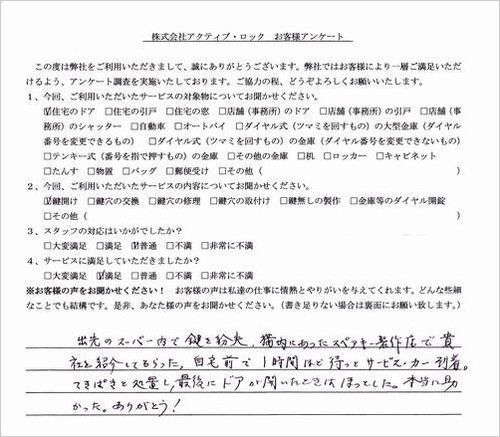 株式会社アクティブ・ロック　お客様アンケート
この度は弊社をご利用いただきまして、誠にありがとうございます。弊社ではお客様により一層ご満足いただ
けるよう、アンケート調査を実施いたしております。ご協力の程、どうぞよろしくお願いいたします。
1、今回、ご利用いただいたサービスの対象物についてお聞かせください。
☑住宅のドア　□住宅の引戸　□住宅の窓　□店舗（事務所）のドア　□店舗（事務所）の引戸　□店舗（事
務所）のシャッター　□自動車　□オートバイ　□ダイヤル式（ツマミを回すもの）の大型金庫（ダイヤル
番号を変更できるもの）　□ダイヤル式（ツマミを回すもの）の金庫（ダイヤル番号を変更できないもの）
□テンキー式（番号を指で押すもの）の金庫　□その他の金庫　□机　□ロッカー　□キャビネット
□たんす　□物置　□バッグ　□郵便受け　□その他（　　　　　　　　　　）
2、今回、ご利用いただいたサービスの内容についてお聞かせください。
☑鍵開け　□鍵穴の交換　□鍵穴の修理　□鍵穴の取付け　□鍵無しの製作　□金庫等のダイヤル開錠
□その他（　　　　　　　　　　）
3、スタッフの対応はいかがでしたか？
□大変満足　□満足　☑普通　□不満　□非常に不満
4、サービスに満足していただきましたか？
□大変満足　☑満足　□普通　□不満　□非常に不満
※お客様の声をお聞かせください！　お客様の声は私達の仕事に情熱とやりがいを与えてくれます。どんな些細
なことでも結構です。是非、あなた様の声をお聞かせください。（書き足りない場合は裏面にお願い致します。）
出先のスーパー内で鍵を紛失、構内にあったスペアキー製作店で貴
社を紹介してもらった。自宅前で1時間ほど待つとサービス・カー到着。
てきぱきと処置し、最後にドアが開いたときはほっとした。本当に助
かった。ありがとう！